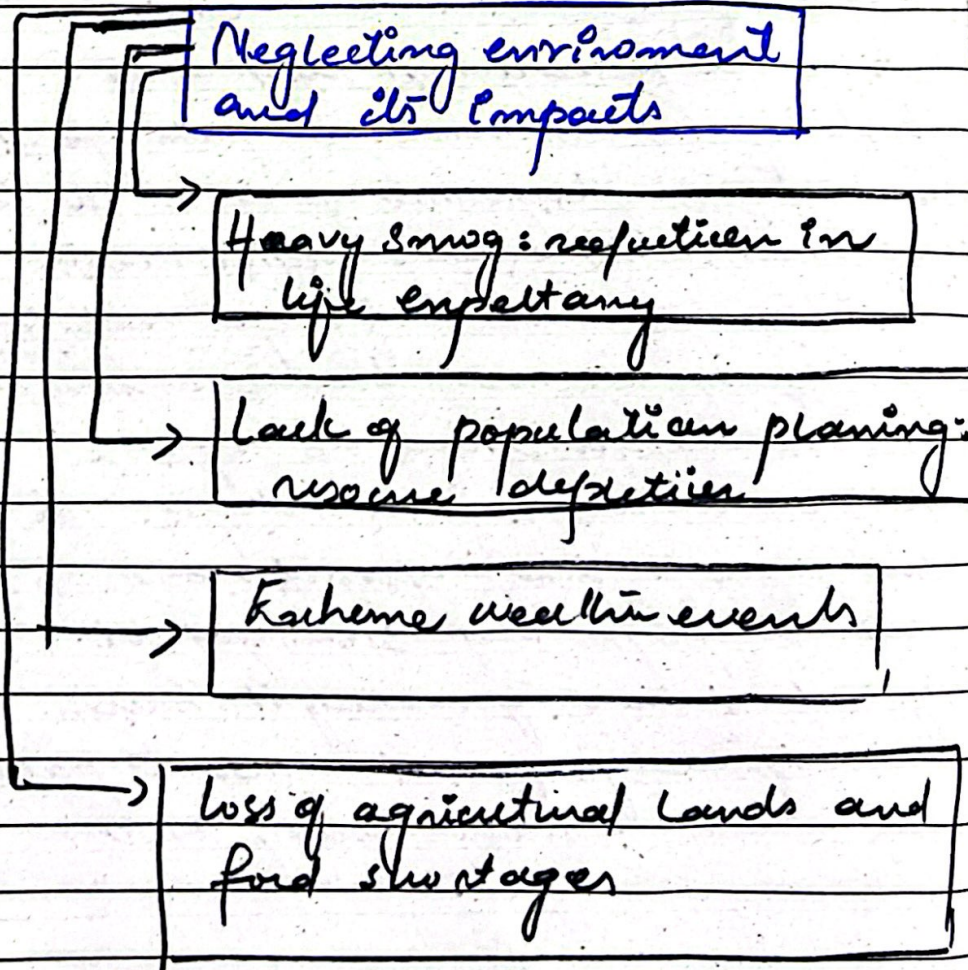 Neglecting enviroment
and its impacts
Heavy smog: reduction in
life expectany
Lack of population planing:
resource depletion
Extreme weather events
Loss of agricultural lands and
food shortages